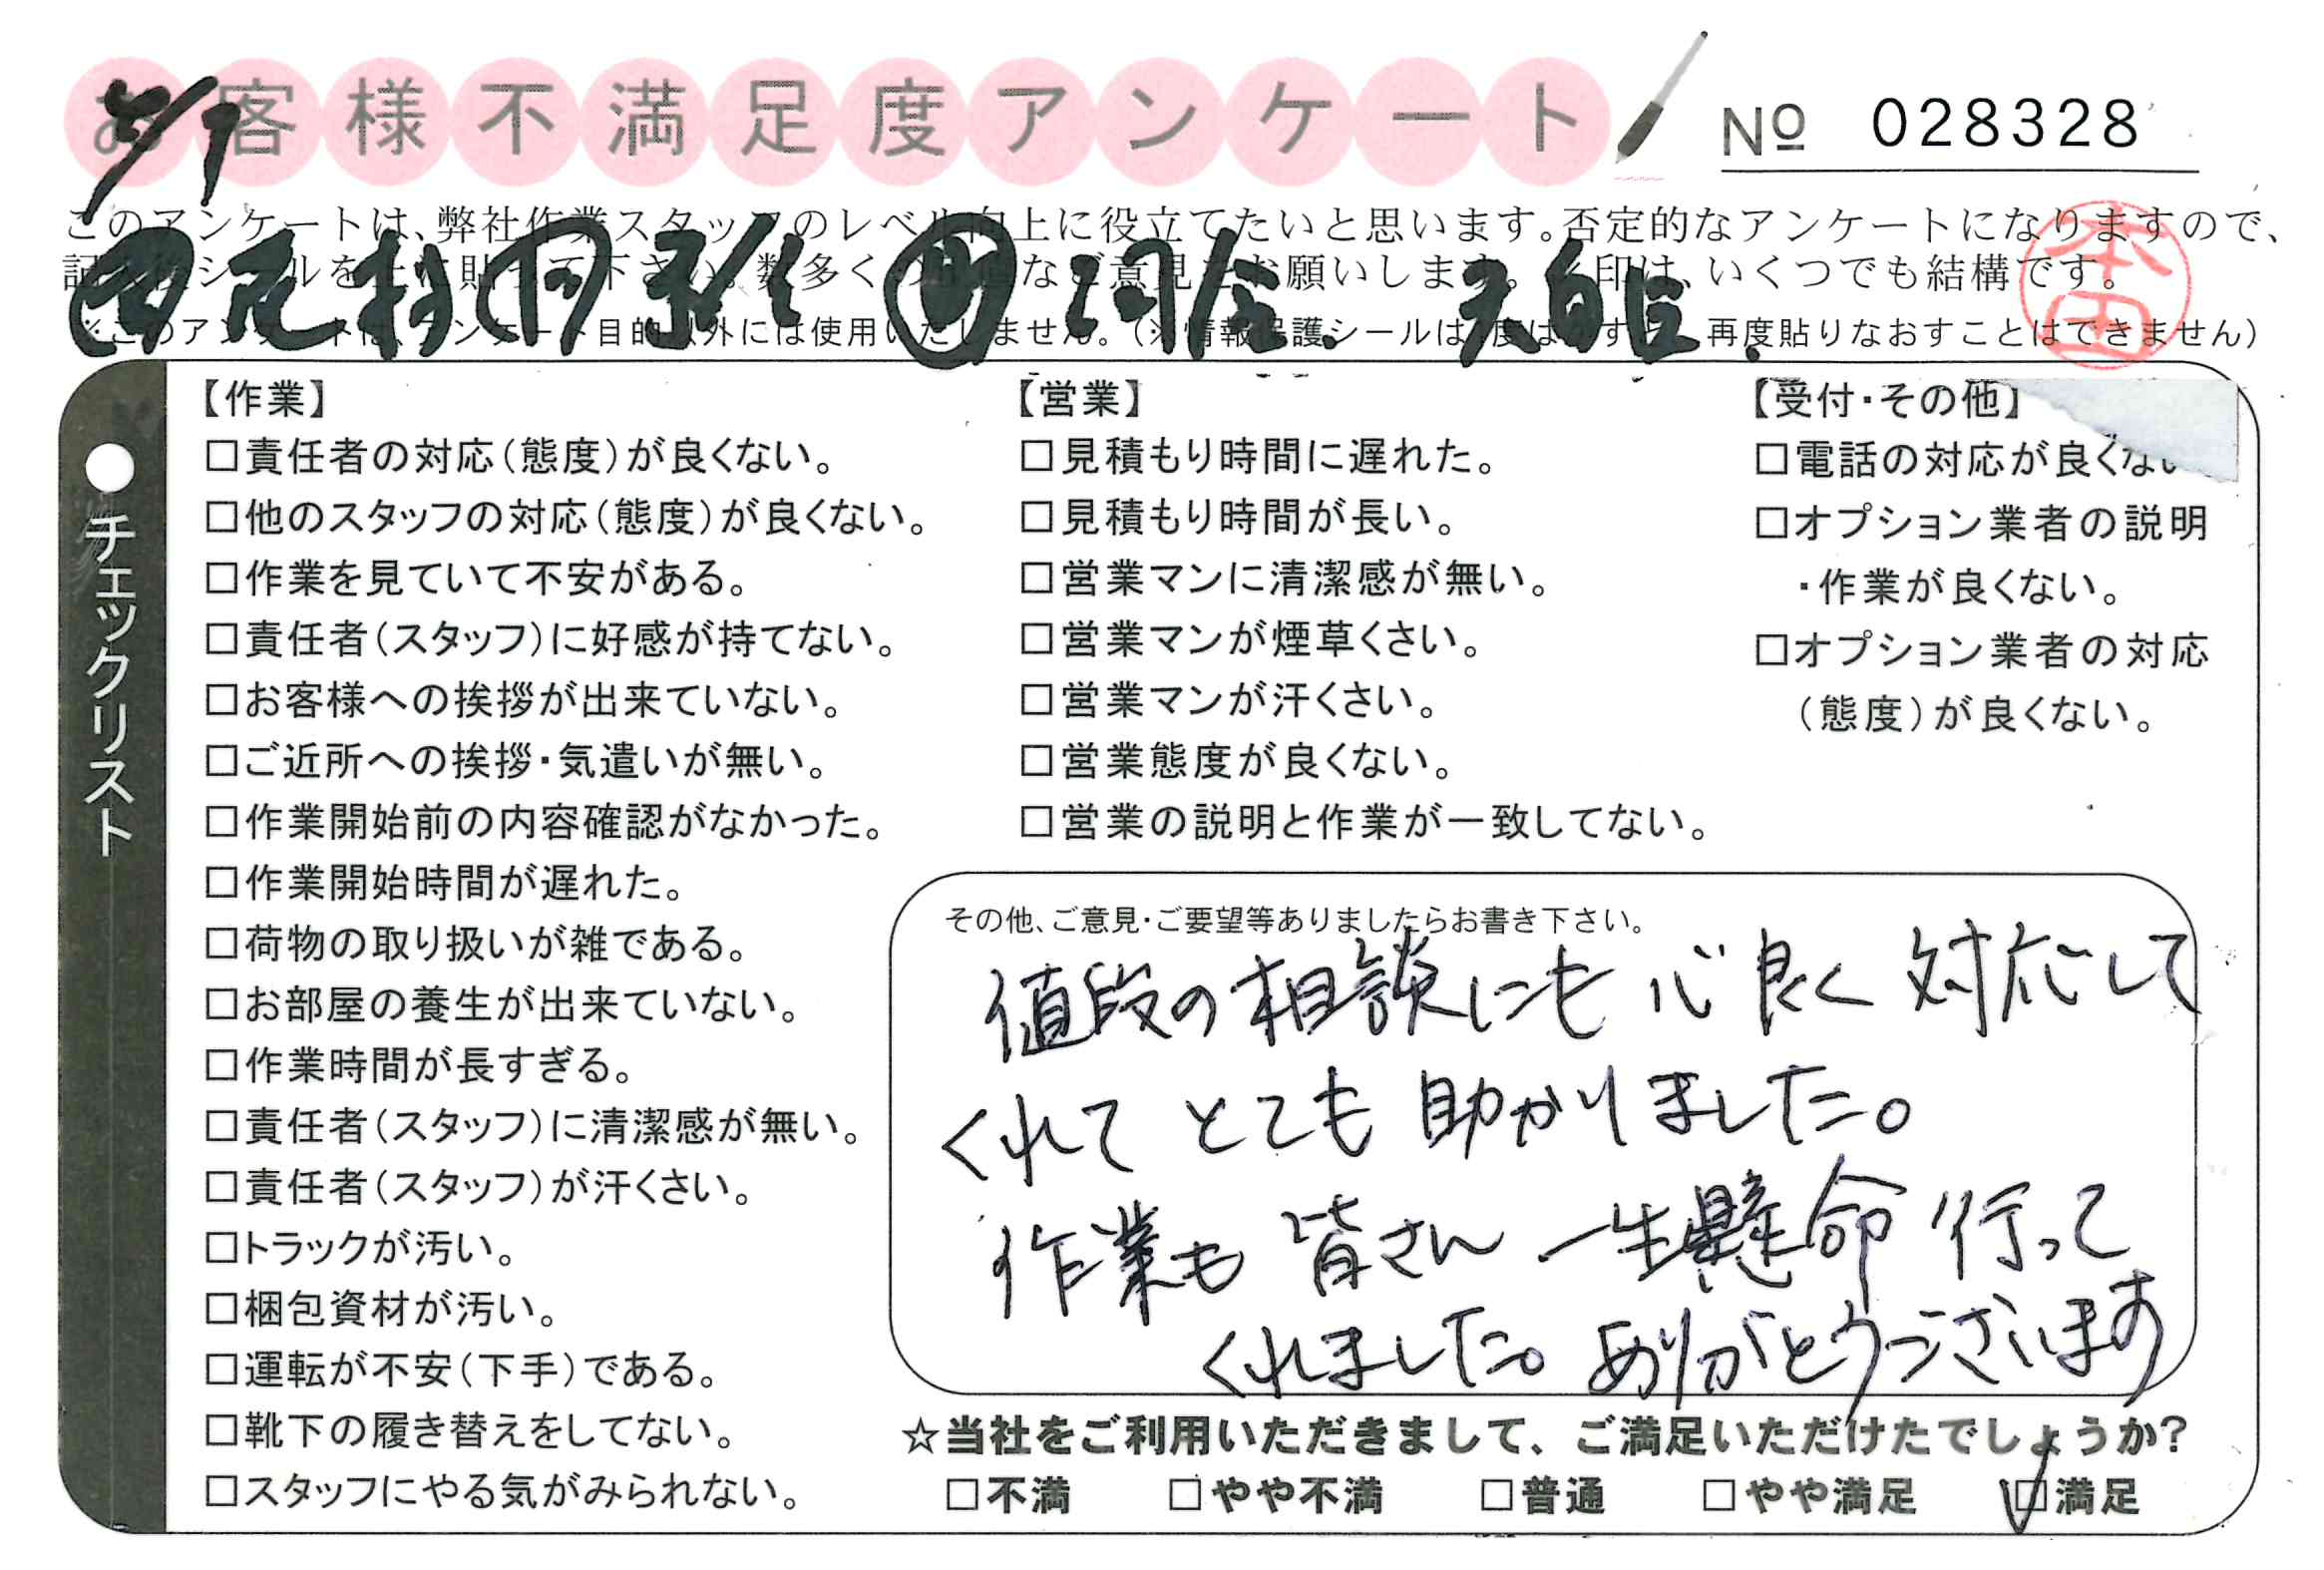 お客様不満足度アンケート
№ 028328
5/1
このアンケートは、弊社作業スタッフのレベル向上に役立てたいと思います。否定的なアンケートになりますので、
いくつでも結構です。
再度貼りなおすことはできません）
本田
●チェックリスト
【作業】
□責任者の対応（態度）が良くない。
□他のスタッフの対応（態度）が良くない。
□作業を見ていて不安がある。
□責任者（スタッフ）に好感が持てない。
□お客様への挨拶が出来ていない。
□ご近所への挨拶・気遣いが無い。
□作業開始前の内容確認がなかった。
□作業開始時間が遅れた。
□荷物の取り扱いが雑である。
□お部屋の養生が出来ていない。
□作業時間が長すぎる。
□責任者（スタッフ）に清潔感が無い。
□責任者（スタッフ）が汗くさい。
□トラックが汚い。
□梱包資材が汚い。
□運転が不安（下手）である。
□靴下の履き替えをしてない。
□スタッフにやる気がみられない。
【営業】
□見積もり時間に遅れた。
□見積もり時間が長い。
□営業マンに清潔感が無い。
□営業マンが煙草くさい。
□営業マンが汗くさい。
□営業態度が良くない。
□営業の説明と作業が一致してない。
【受付・その他】
□電話の対応が良くない
□オプション業者の説明
・作業が良くない。
□オプション業者の対応
（態度）が良くない。
その他、ご意見・ご要望等ありましたらお書き下さい。
値段の相談にも心良く対応して
くれてとても助かりました。
作業も皆さん一生懸命行って
くれました。ありがとうございます
☆当社をご利用いただきまして、ご満足いただけたでしょうか？
□不満 □やや不満 □普通 □やや満足 ☑満足